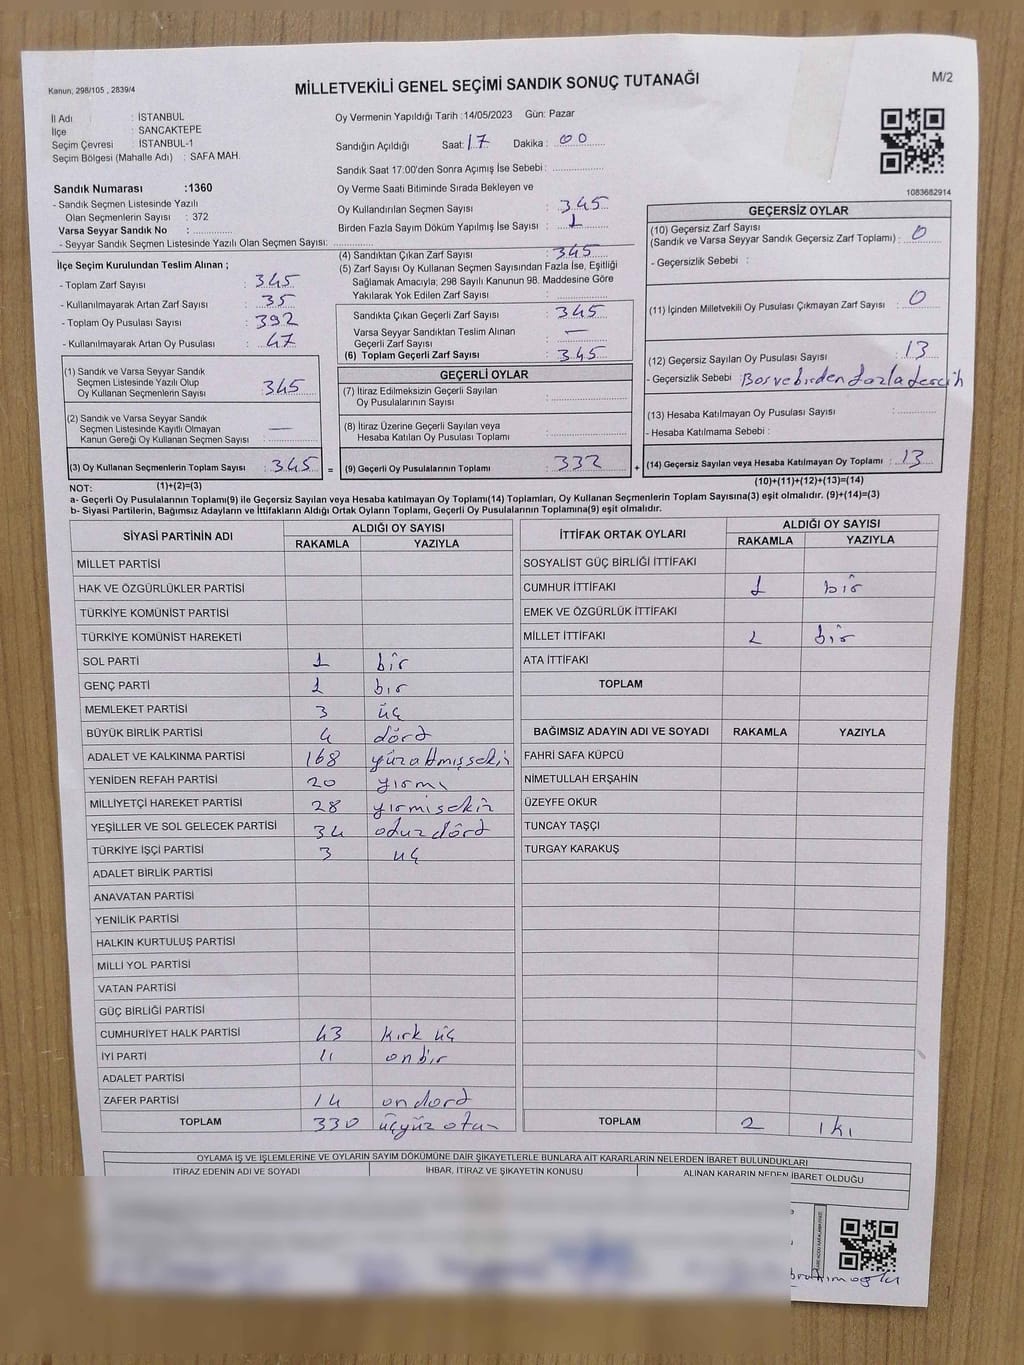 Kanun, 298/105 , 2839/4
MİLLETVEKİLİ GENEL SEÇİMİ SANDIK SONUÇ TUTANAĞI
M/2
İl Adı : İSTANBUL
İlçe : SANCAKTEPE
Seçim Çevresi : İSTANBUL-1
Seçim Bölgesi (Mahalle Adı) : SAFA MAH.
Oy Vermenin Yapıldığı Tarih :14/05/2023 Gün: Pazar
Sandığın Açıldığı Saat: 17 Dakika : 00
Sandık Saat 17:00'den Sonra Açımış İse Sebebi :
1083682914
Sandık Numarası :1360
- Sandık Seçmen Listesinde Yazılı
Olan Seçmenlerin Sayısı : 372
Varsa Seyyar Sandık No :
- Seyyar Sandık Seçmen Listesinde Yazılı Olan Seçmen Sayısı:
Oy Verme Saati Bitiminde Sırada Bekleyen ve
Oy Kullandırılan Seçmen Sayısı : 345
Birden Fazla Sayım Döküm Yapılmış İse Sayısı : 1
İlçe Seçim Kurulundan Teslim Alınan ;
- Toplam Zarf Sayısı : 345
- Kullanılmayarak Artan Zarf Sayısı : 35
- Toplam Oy Pusulası Sayısı : 392
- Kullanılmayarak Artan Oy Pusulası : 47
(1) Sandık ve Varsa Seyyar Sandık
Seçmen Listesinde Yazılı Olup
Oy Kullanan Seçmenlerin Sayısı : 345
(2) Sandık ve Varsa Seyyar Sandık
Seçmen Listesinde Kayıtlı Olmayan
Kanun Gereği Oy Kullanan Seçmen Sayısı : —
(3) Oy Kullanan Seçmenlerin Toplam Sayısı : 345 =
(1)+(2)=(3)
(4) Sandıktan Çıkan Zarf Sayısı : 345
(5) Zarf Sayısı Oy Kullanan Seçmen Sayısından Fazla İse, Eşitliği
Sağlamak Amacıyla; 298 Sayılı Kanunun 98. Maddesine Göre
Yakılarak Yok Edilen Zarf Sayısı :
Sandıkta Çıkan Geçerli Zarf Sayısı : 345
Varsa Seyyar Sandıktan Teslim Alınan
Geçerli Zarf Sayısı : —
(6) Toplam Geçerli Zarf Sayısı : 345
GEÇERLİ OYLAR
(7) İtiraz Edilmeksizin Geçerli Sayılan
Oy Pusulalarının Sayısı :
(8) İtiraz Üzerine Geçerli Sayılan veya
Hesaba Katılan Oy Pusulası Toplamı :
(9) Geçerli Oy Pusulalarının Toplamı : 332 +
GEÇERSİZ OYLAR
(10) Geçersiz Zarf Sayısı
(Sandık ve Varsa Seyyar Sandık Geçersiz Zarf Toplamı) : 0
- Geçersizlik Sebebi :
(11) İçinden Milletvekili Oy Pusulası Çıkmayan Zarf Sayısı : 0
(12) Geçersiz Sayılan Oy Pusulası Sayısı : 13
- Geçersizlik Sebebi : Bos ve birden fazla tercih
(13) Hesaba Katılmayan Oy Pusulası Sayısı :
- Hesaba Katılmama Sebebi :
(14) Geçersiz Sayılan veya Hesaba Katılmayan Oy Toplamı : 13
(10)+(11)+(12)+(13)=(14)
NOT:
a- Geçerli Oy Pusulalarının Toplamı(9) ile Geçersiz Sayılan veya Hesaba katılmayan Oy Toplamı(14) Toplamları, Oy Kullanan Seçmenlerin Toplam Sayısına(3) eşit olmalıdır. (9)+(14)=(3)
b- Siyasi Partilerin, Bağımsız Adayların ve İttifakların Aldığı Ortak Oyların Toplamı, Geçerli Oy Pusulalarının Toplamına(9) eşit olmalıdır.
SİYASİ PARTİNİN ADI ALDIĞI OY SAYISI
RAKAMLA YAZIYLA
MİLLET PARTİSİ
HAK VE ÖZGÜRLÜKLER PARTİSİ
TÜRKİYE KOMÜNİST PARTİSİ
TÜRKİYE KOMÜNİST HAREKETİ
SOL PARTİ 1 bir
GENÇ PARTİ 1 bir
MEMLEKET PARTİSİ 3 üç
BÜYÜK BİRLİK PARTİSİ 4 dört
ADALET VE KALKINMA PARTİSİ 168 yüzaltmışsekiz
YENİDEN REFAH PARTİSİ 20 yirmi
MİLLİYETÇİ HAREKET PARTİSİ 28 yirmisekiz
YEŞİLLER VE SOL GELECEK PARTİSİ 34 otuzdört
TÜRKİYE İŞÇİ PARTİSİ 3 üç
ADALET BİRLİK PARTİSİ
ANAVATAN PARTİSİ
YENİLİK PARTİSİ
HALKIN KURTULUŞ PARTİSİ
MİLLİ YOL PARTİSİ
VATAN PARTİSİ
GÜÇ BİRLİĞİ PARTİSİ
CUMHURİYET HALK PARTİSİ 43 kırk üç
İYİ PARTİ 11 onbir
ADALET PARTİSİ
ZAFER PARTİSİ 14 ondört
TOPLAM 330 üçyüz otuz
İTTİFAK ORTAK OYLARI ALDIĞI OY SAYISI
RAKAMLA YAZIYLA
SOSYALİST GÜÇ BİRLİĞİ İTTİFAKI
CUMHUR İTTİFAKI 1 bir
EMEK VE ÖZGÜRLÜK İTTİFAKI
MİLLET İTTİFAKI 1 bir
ATA İTTİFAKI
TOPLAM
BAĞIMSIZ ADAYIN ADI VE SOYADI RAKAMLA YAZIYLA
FAHRİ SAFA KÜPCÜ
NİMETULLAH ERŞAHİN
ÜZEYFE OKUR
TUNCAY TAŞÇI
TURGAY KARAKUŞ
TOPLAM 2 iki
OYLAMA İŞ VE İŞLEMLERİNE VE OYLARIN SAYIM DÖKÜMÜNE DAİR ŞİKAYETLERLE BUNLARA AİT KARARLARIN NELERDEN İBARET BULUNDUKLARI
İTİRAZ EDENİN ADI VE SOYADI İHBAR, İTİRAZ VE ŞİKAYETİN KONUSU ALINAN KARARIN NEDEN İBARET OLDUĞU